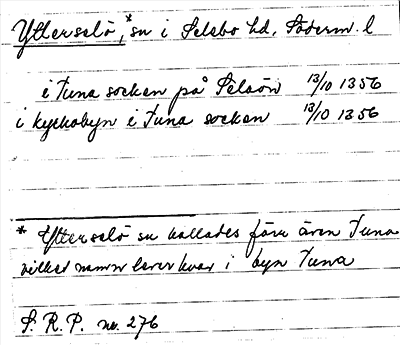 Ytterselö,* sn i Selebo hd, Söderm. l
i Tuna socken på Selaön 13/10 1356
i kyrkobyn i Tuna socken 13/10 1356
* Ytterselö sn kallades förr även Tuna
vilket namn lever kvar i byn Tuna
S. R. P. nr. 276